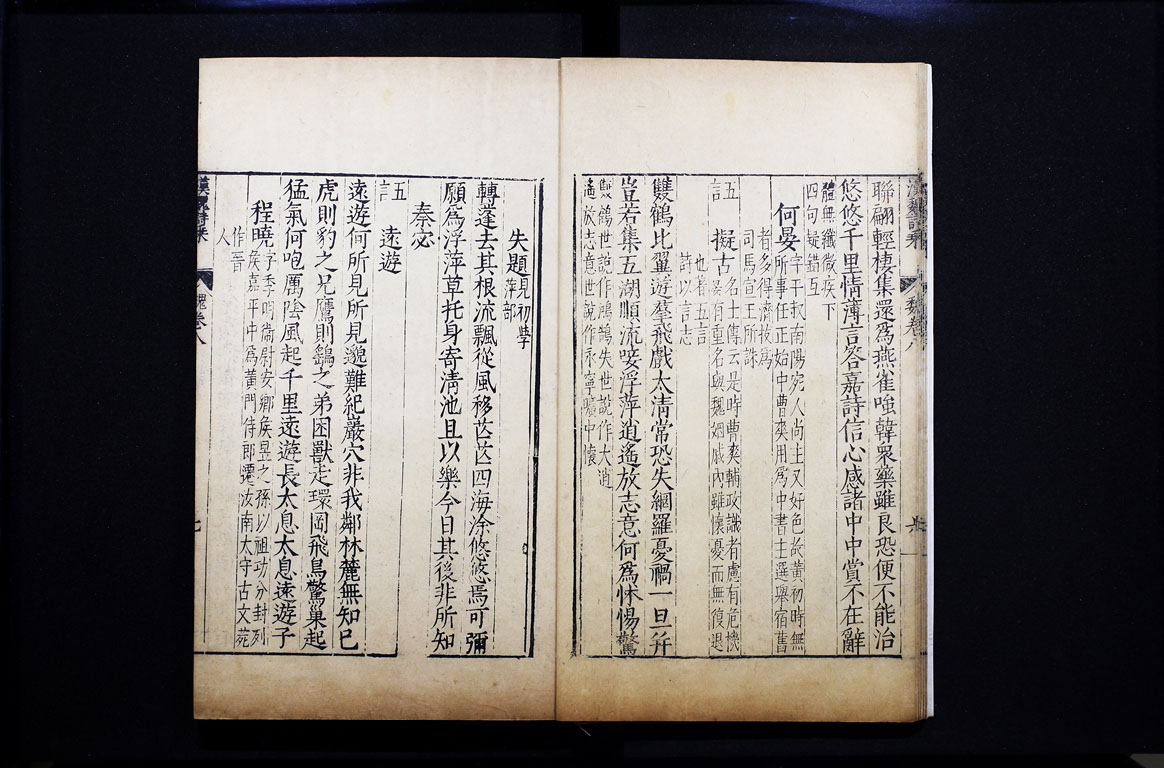 聯翩輕棲集還為燕雀嗤韓衆藥雖良恐便不能治
悠悠千里情薄言答嘉詩信心感諸中中賞不在辭
體無纖微疾下
四句疑錯互
何晏
字平叔南陽宛人尚主又好色故黃初時無
所事任正始中曹爽用為中書主選舉宿舊
者多得濟拔為
司馬宣王所誅
五言
擬古
名士傳云是時曹爽輔政識者慮有危機
晏有重名與魏姻戚內雖懷憂而無復退
也著五言
詩以言志
雙鶴比翼遊羣飛戲太清常恐失網羅憂禍一旦并
豈若集五湖順流唼浮萍逍遙放志意何為怵惕驚
雙鶴世說作鴻鵠失世說作大逍
遙放志意世說作永寧曠中懷
失題
見初學
萍部
轉蓬去其根流飄從風移芒芒四海涂悠悠焉可彌
願為浮萍草托身寄清池且以樂今日其後非所知
秦宓
五言
遠遊
遠遊何所見所見邈難紀巖穴非我鄰林麓無知己
虎則豹之兄鷹則鷂之弟困獸走環岡飛鳥驚巢起
猛氣何咆厲陰風起千里遠遊長太息太息遠遊子
程曉
字季明衛尉安鄉侯昱之孫以祖功分封列
侯嘉平中為黃門侍郎遷汝南太守古文苑
作晉
人
魏卷八
魏卷八
七